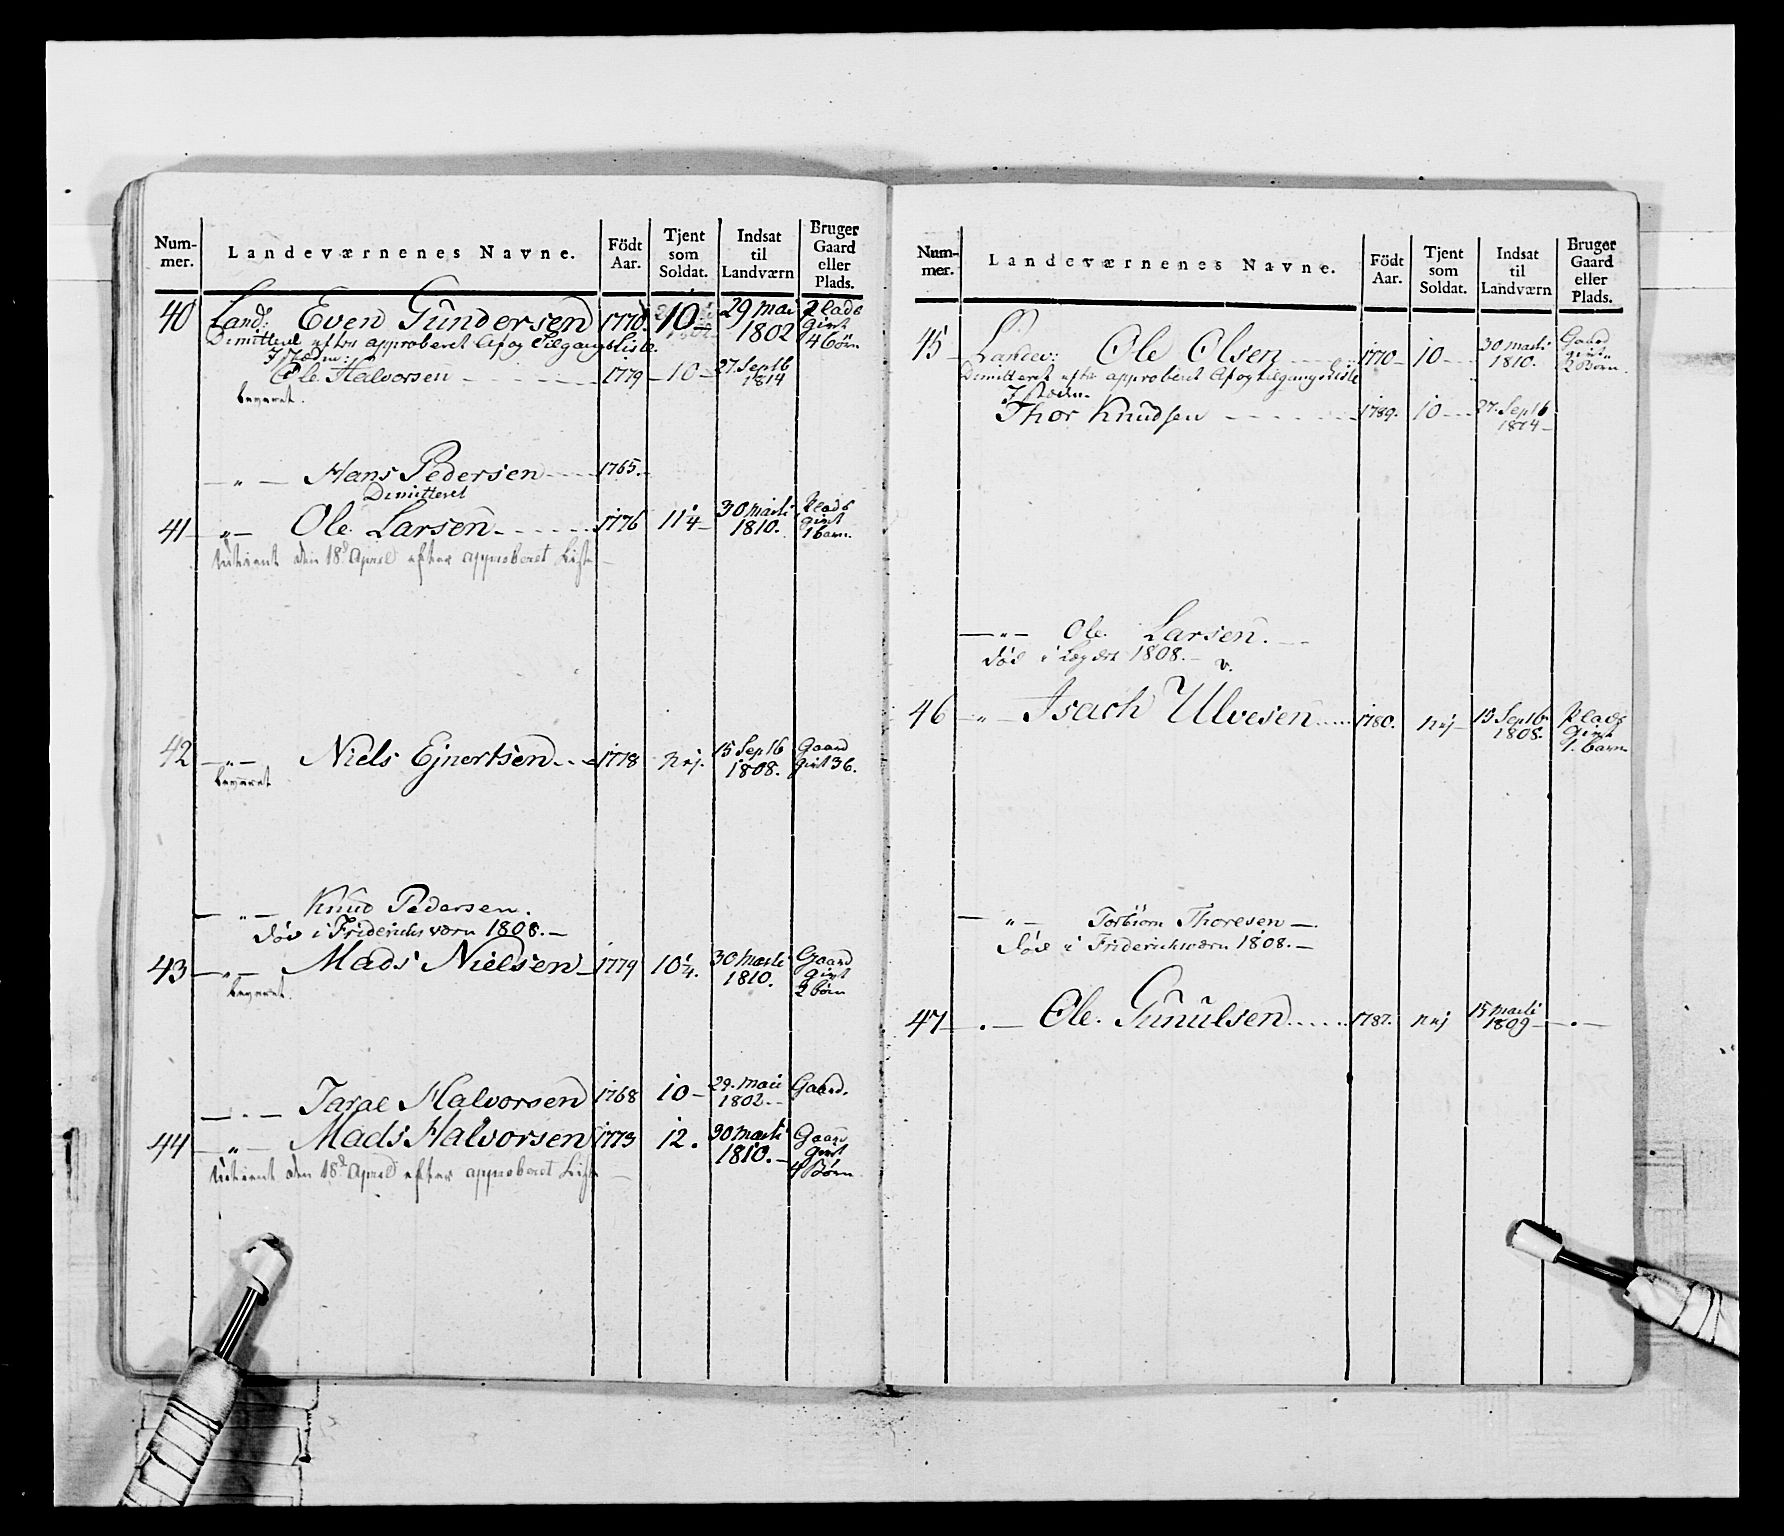 Num-
mer.
Landeværnenes Navne.
Födt
Aar.
Tjent
som
Soldat.
Indsat
til
Landværn
Bruger
Gaard
eller
Plads.
40 Landv: Even Gundersen 1770. 10 29 Mai 1802 Plads Givt 4 börn
Dimitteret efter approberet Af og Tilgangs Liste.
I Stæden:
Ole Halvorsen 1779 10 27. Septb 1814
beværet.
— " — Hans Pedersen 1765.
Dimitteret
41 — " — Ole Larsen 1776 11 1/4 30 Marti 1810. Plads givt 1 barn.
den 18d April efter approberet Liste
42 — " — Niels Ejnertsen 1778 nej. 15 Septb 1808. Gaard Givt 3 b.
beværet
— " — Knud Pedersen.
död i Friderichsværn 1808. —
43 — " — Mads Nielsen 1779 10 1/4. 30 Marti 1810. Gaard givt 2 börn
beværet.
— " — Taral Halvorsen 1768 10 — 29. Maii 1802. Gaard.
44 — " — Mads Halvorsen 1773 12. 30 Marti 1810. — Gaard givt 4 Börn
den 18d April efter approberet Liste —
Num-
mer.
Landeværnenes Navne.
Födt
Aar.
Tjent
som
Soldat.
Indsat
til
Landværn
Bruger
Gaard
eller
Plads.
45 — Landev: Ole Olsen 1770 10 30 Marti 1810. Gaard givt 2 Börn.
Dimitteret efter approberet Af og tilgangs Liste
I stæden
Thor Knudsen 1789. 10 27. Septb 1814 —
— " — Ole Larsen.
död i Lazaret 1808. — v.
46 — " — Isach Ulvesen 1780. nej 15 Septb 1808. Plads Givt 1. barn
— " — Torbiörn Thoresen —.
död i Friderichsværn 1808. —
47 — . — Ole Gunulsen 1787. nej 15 Marti 1809 — . —